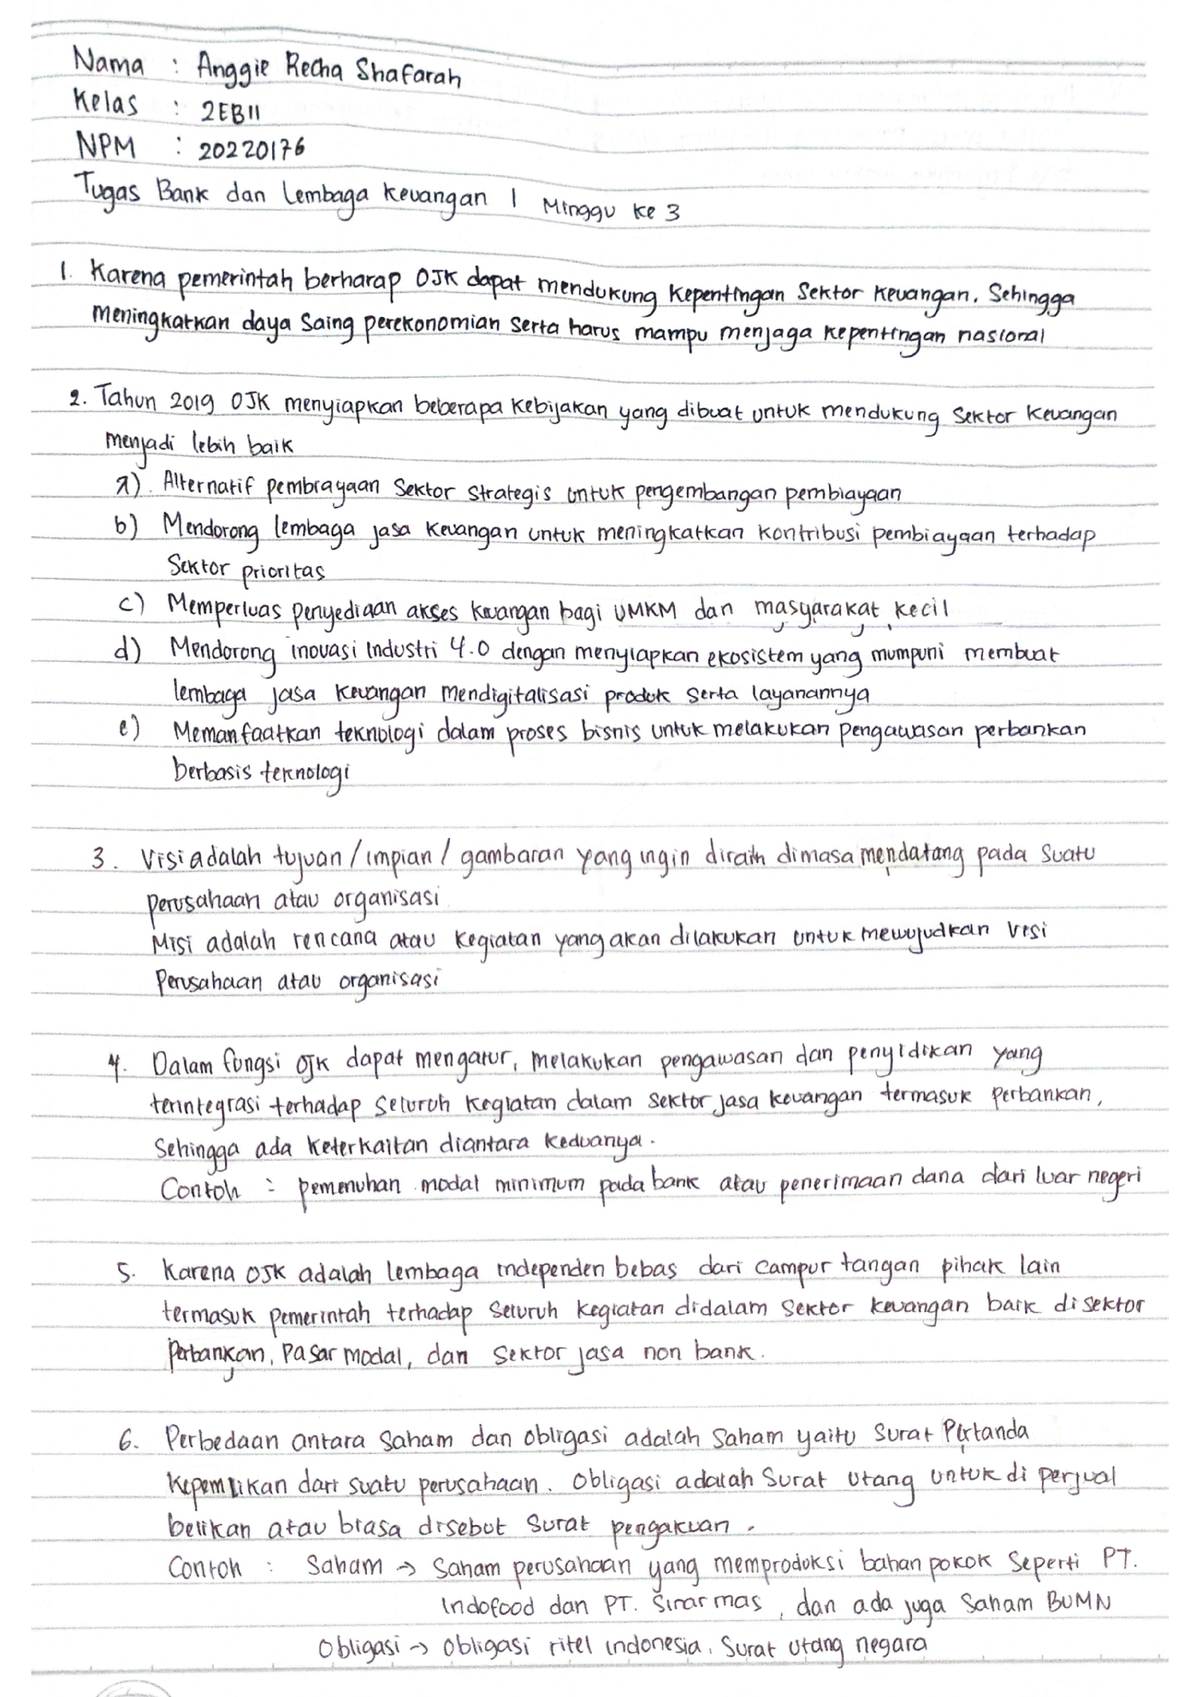 Nama : Anggie Recha Shafarah
Kelas : 2EB11
NPM : 20220176
Tugas Bank dan Lembaga Keuangan 1 Minggu ke 3
1. Karena pemerintah berharap OJK dapat mendukung kepentingan Sektor Keuangan. Sehingga
meningkatkan daya Saing perekonomian serta harus mampu menjaga kepentingan nasional
2. Tahun 2019 OJK menyiapkan beberapa kebijakan yang dibuat untuk mendukung Sektor Keuangan
menjadi lebih baik
a). Alternatif pembiayaan Sektor Strategis untuk pengembangan pembiayaan
b) Mendorong lembaga jasa keuangan untuk meningkatkan kontribusi pembiayaan terhadap
Sektor prioritas
c) Memperluas penyediaan akses keuangan bagi UMKM dan masyarakat kecil
d) Mendorong inovasi Industri 4.0 dengan menyiapkan ekosistem yang mumpuni membuat
lembaga jasa keuangan mendigitalisasi produk serta layanannya
e) Memanfaatkan teknologi dalam proses bisnis untuk melakukan pengawasan perbankan
berbasis teknologi
3. Visi adalah tujuan / impian / gambaran yang ingin diraih dimasa mendatang pada Suatu
perusahaan atau organisasi
Misi adalah rencana atau kegiatan yang akan dilakukan untuk mewujudkan visi
Perusahaan atau organisasi
4. Dalam fungsi OJK dapat mengatur, melakukan pengawasan dan penyidikan yang
terintegrasi terhadap seluruh kegiatan dalam sektor jasa keuangan termasuk perbankan,
Sehingga ada keterkaitan diantara keduanya.
Contoh : pemenuhan modal minimum pada bank atau penerimaan dana dari luar negeri
5. Karena OJK adalah lembaga independen bebas dari campur tangan pihak lain
termasuk pemerintah terhadap seluruh kegiatan didalam Sektor keuangan baik di sektor
Perbankan, Pasar modal, dan Sektor jasa non bank.
6. Perbedaan antara Saham dan obligasi adalah Saham yaitu Surat Pertanda
kepemilikan dari suatu perusahaan. Obligasi adalah Surat utang untuk di perjual
belikan atau biasa disebut Surat pengakuan.
Contoh : Saham → Saham perusahaan yang memproduksi bahan pokok Seperti PT.
Indofood dan PT. Sinarmas, dan ada juga Saham BUMN
Obligasi → Obligasi ritel Indonesia, Surat utang negara